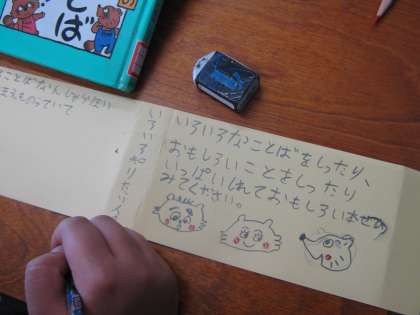 とば
ことばなんしゅるい
まえものっていて
いろいろ知りたい人
いろいろなことばをしったり、
おもしろいことをしったり
いっぱいしれておもしろい
みてください。